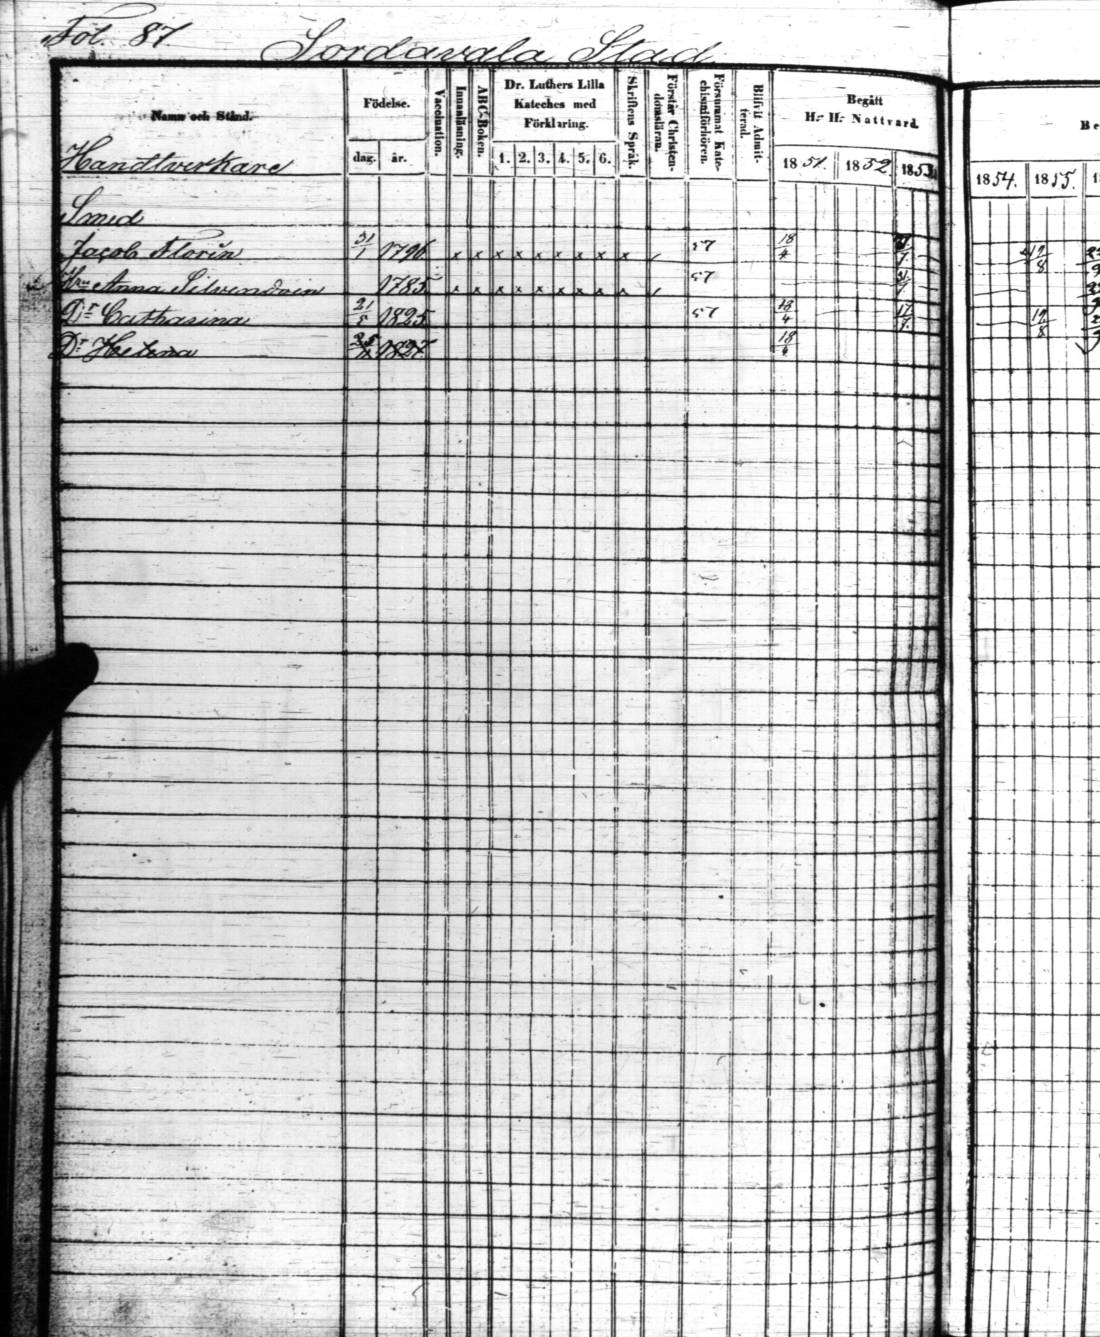 Fol. 87.
Sordavala Stad
Namn och Stånd.
Födelse.
dag. år.
Vaccination.
Innanläsning.
ABC-Boken.
Dr. Luthers Lilla
Kateches med
Förklaring.
1. 2. 3. 4. 5. 6.
Skriftens Språk.
Förstår Christen-
domsläran.
Försummat Kate-
chismiförhören.
Blifvit Admit-
terad.
Begått
H. H. Nattvard.
1851. 1852. 1853.
1854. 1855.
Be
Handtverkare
Smed
Jacob Florin 31/1 1796 x x x x x x x x x 18/4
Hru Anna Silvendoin 1785 x x x x x x x x x
Dr Catharina 21/5 1825 18/4 17/7 19/8
Dr Helena 1827 18/4